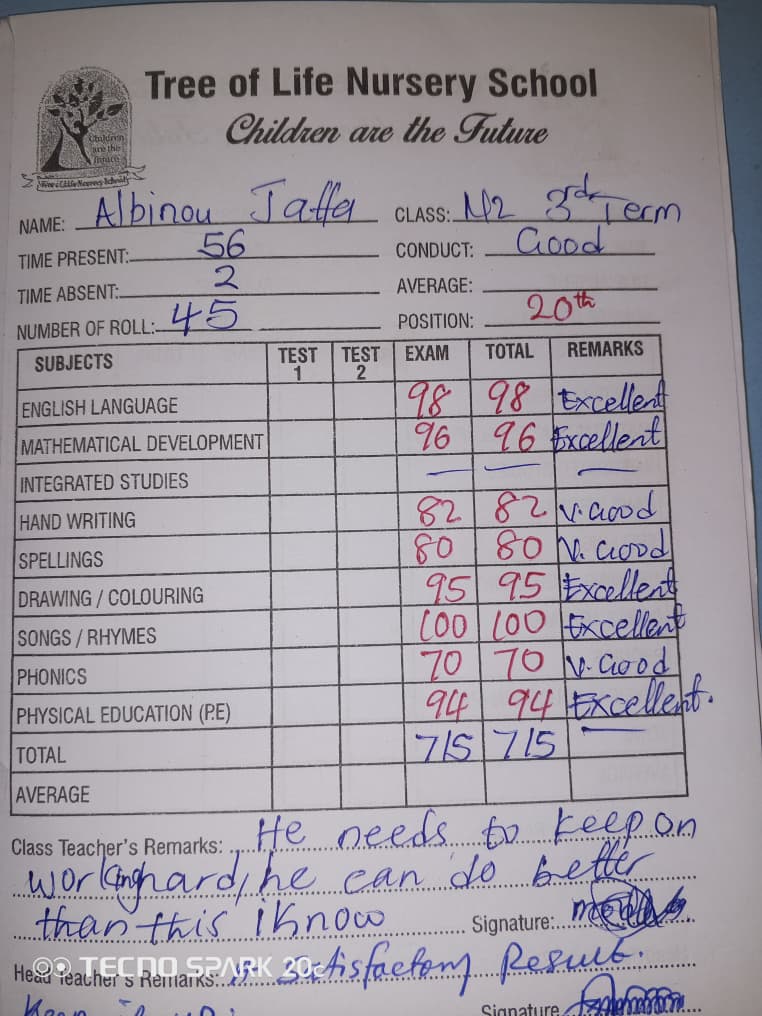 Tree of Life Nursery School
Children are the Future
Children are the Future
Tree of Life Nursery School
NAME: Albinou Jaffa CLASS: N2 3rd Term
TIME PRESENT: 56 CONDUCT: Good
TIME ABSENT: 2 AVERAGE:
NUMBER OF ROLL: 45 POSITION: 20th
SUBJECTS TEST 1 TEST 2 EXAM TOTAL REMARKS
ENGLISH LANGUAGE 98 98 Excellent
MATHEMATICAL DEVELOPMENT 96 96 Excellent
INTEGRATED STUDIES — — —
HAND WRITING 82 82 V. Good
SPELLINGS 80 80 V. Good
DRAWING / COLOURING 95 95 Excellent
SONGS / RHYMES 100 100 Excellent
PHONICS 70 70 V. Good
PHYSICAL EDUCATION (P.E) 94 94 Excellent.
TOTAL 715 715 —
AVERAGE
Class Teacher's Remarks: He needs to keep on
working hard, he can do better
than this i know Signature:
Head Teacher's Remarks: A Satisfactory Result.
Keep it up Signature
TECNO SPARK 20c